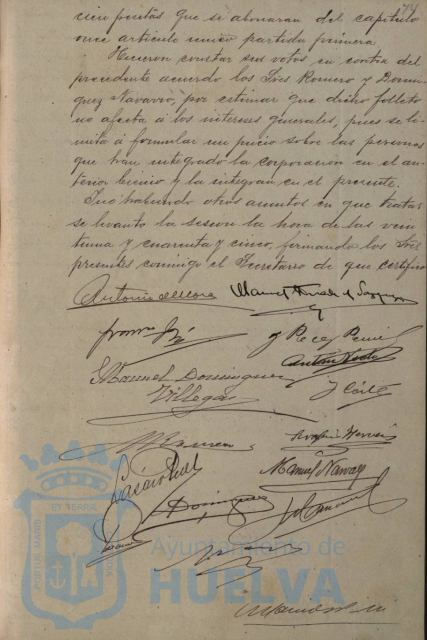 cien pesetas que se abonaran del capítulo
once artículo único partida primera.
Hicieron constar sus votos en contra del
precedente acuerdo los Sres Romero y Domin
guez Navarro, por estimar que dicho folleto
no afecta á los intereses generales, pues se li-
mita á formular un juicio sobre las personas
que han integrado la corporación en el an-
terior bienio y la integran en el presente.
No habiendo otros asuntos en que tratar
se levantó la sesión la hora de las vein
tiuna y cuarenta y cinco, firmando los Sres
presentes conmigo el Secretario de que certifico
Antonio de Mora
Manuel
Manuel Dominguez
Villegas
Manuel Navarro
Dominguez
ET TERRA
PORTUS MARIS
Ayuntamiento de
HUELVA